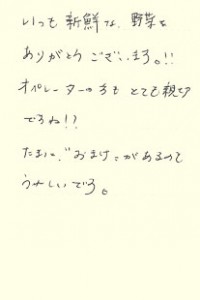 いつも新鮮な、野菜を
ありがとうございます。!!
オペレーターの方も とても親切
ですね!?
たまに、"おまけ"があるので
うれしいです。